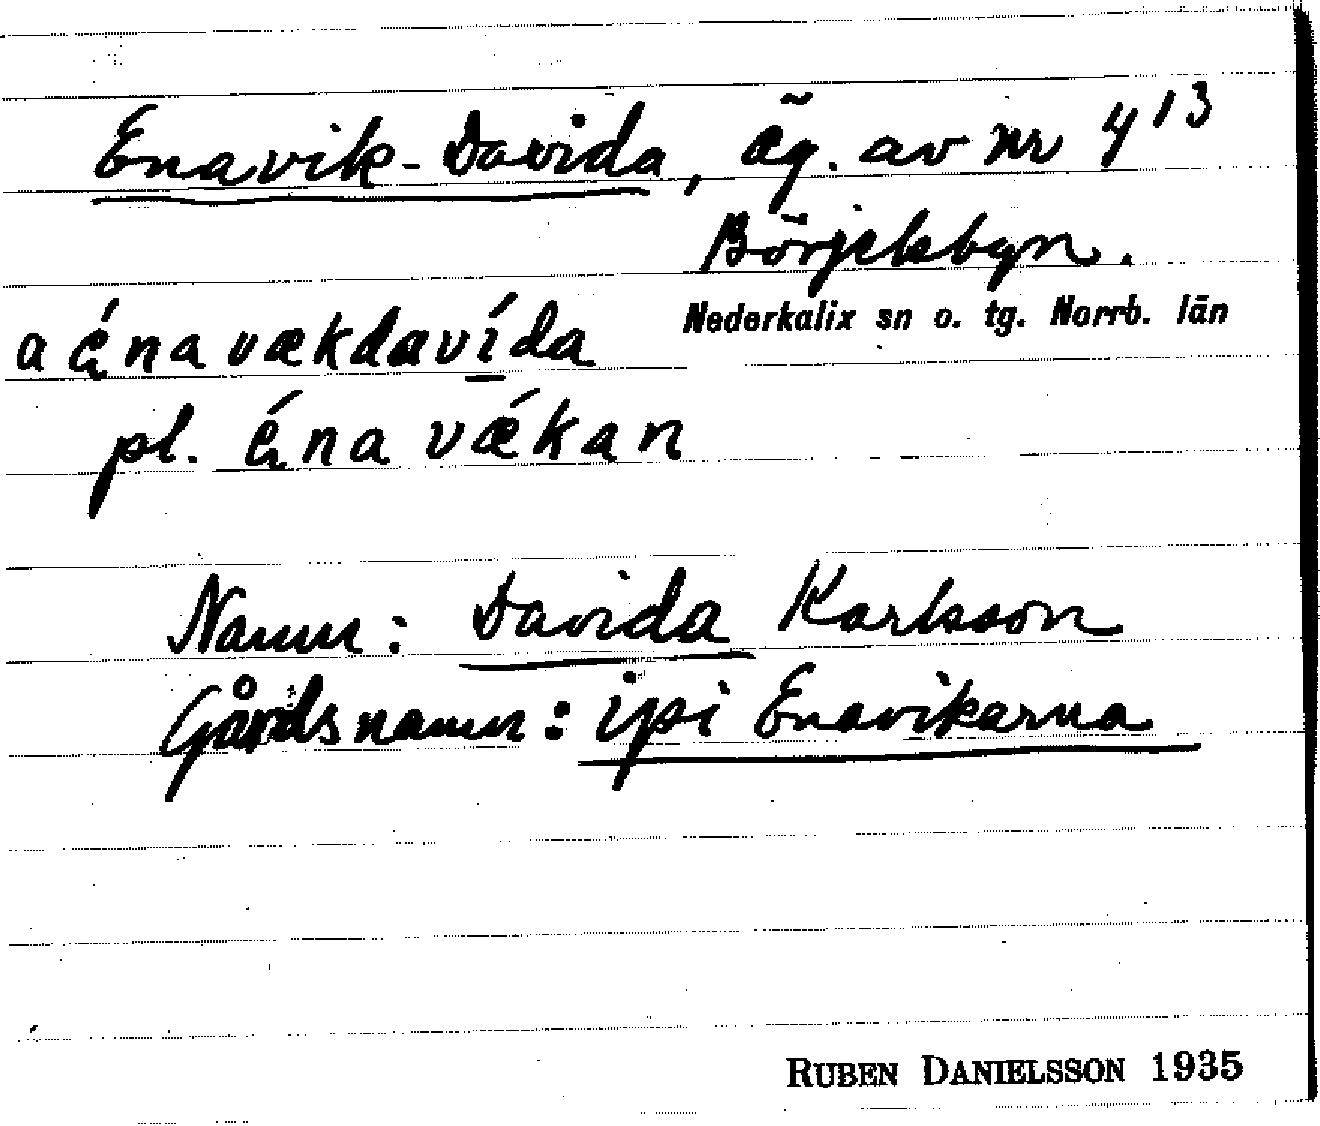 Enavik-Davida, äg. av nr 4¹³
Börjelsbyn.
Nederkalix sn o. tg. Norrb. län
a énavækdavída
pl. éna vǽkan
Namn: Davida Karlsson
Gårdsnamn: ipi Enavikarna
RUBEN DANIELSSON 1935